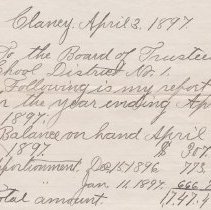 Clancy. April 3. 1897
To the Board of Trustee
School District No. 1.
Following is my report
r the year ending Ap
1897.
Balance on hand April
1897 $ 307.
portionment. Dec 15 1896 773.
Jan. 11. 1897. 666.
otal amount. 1,747.4